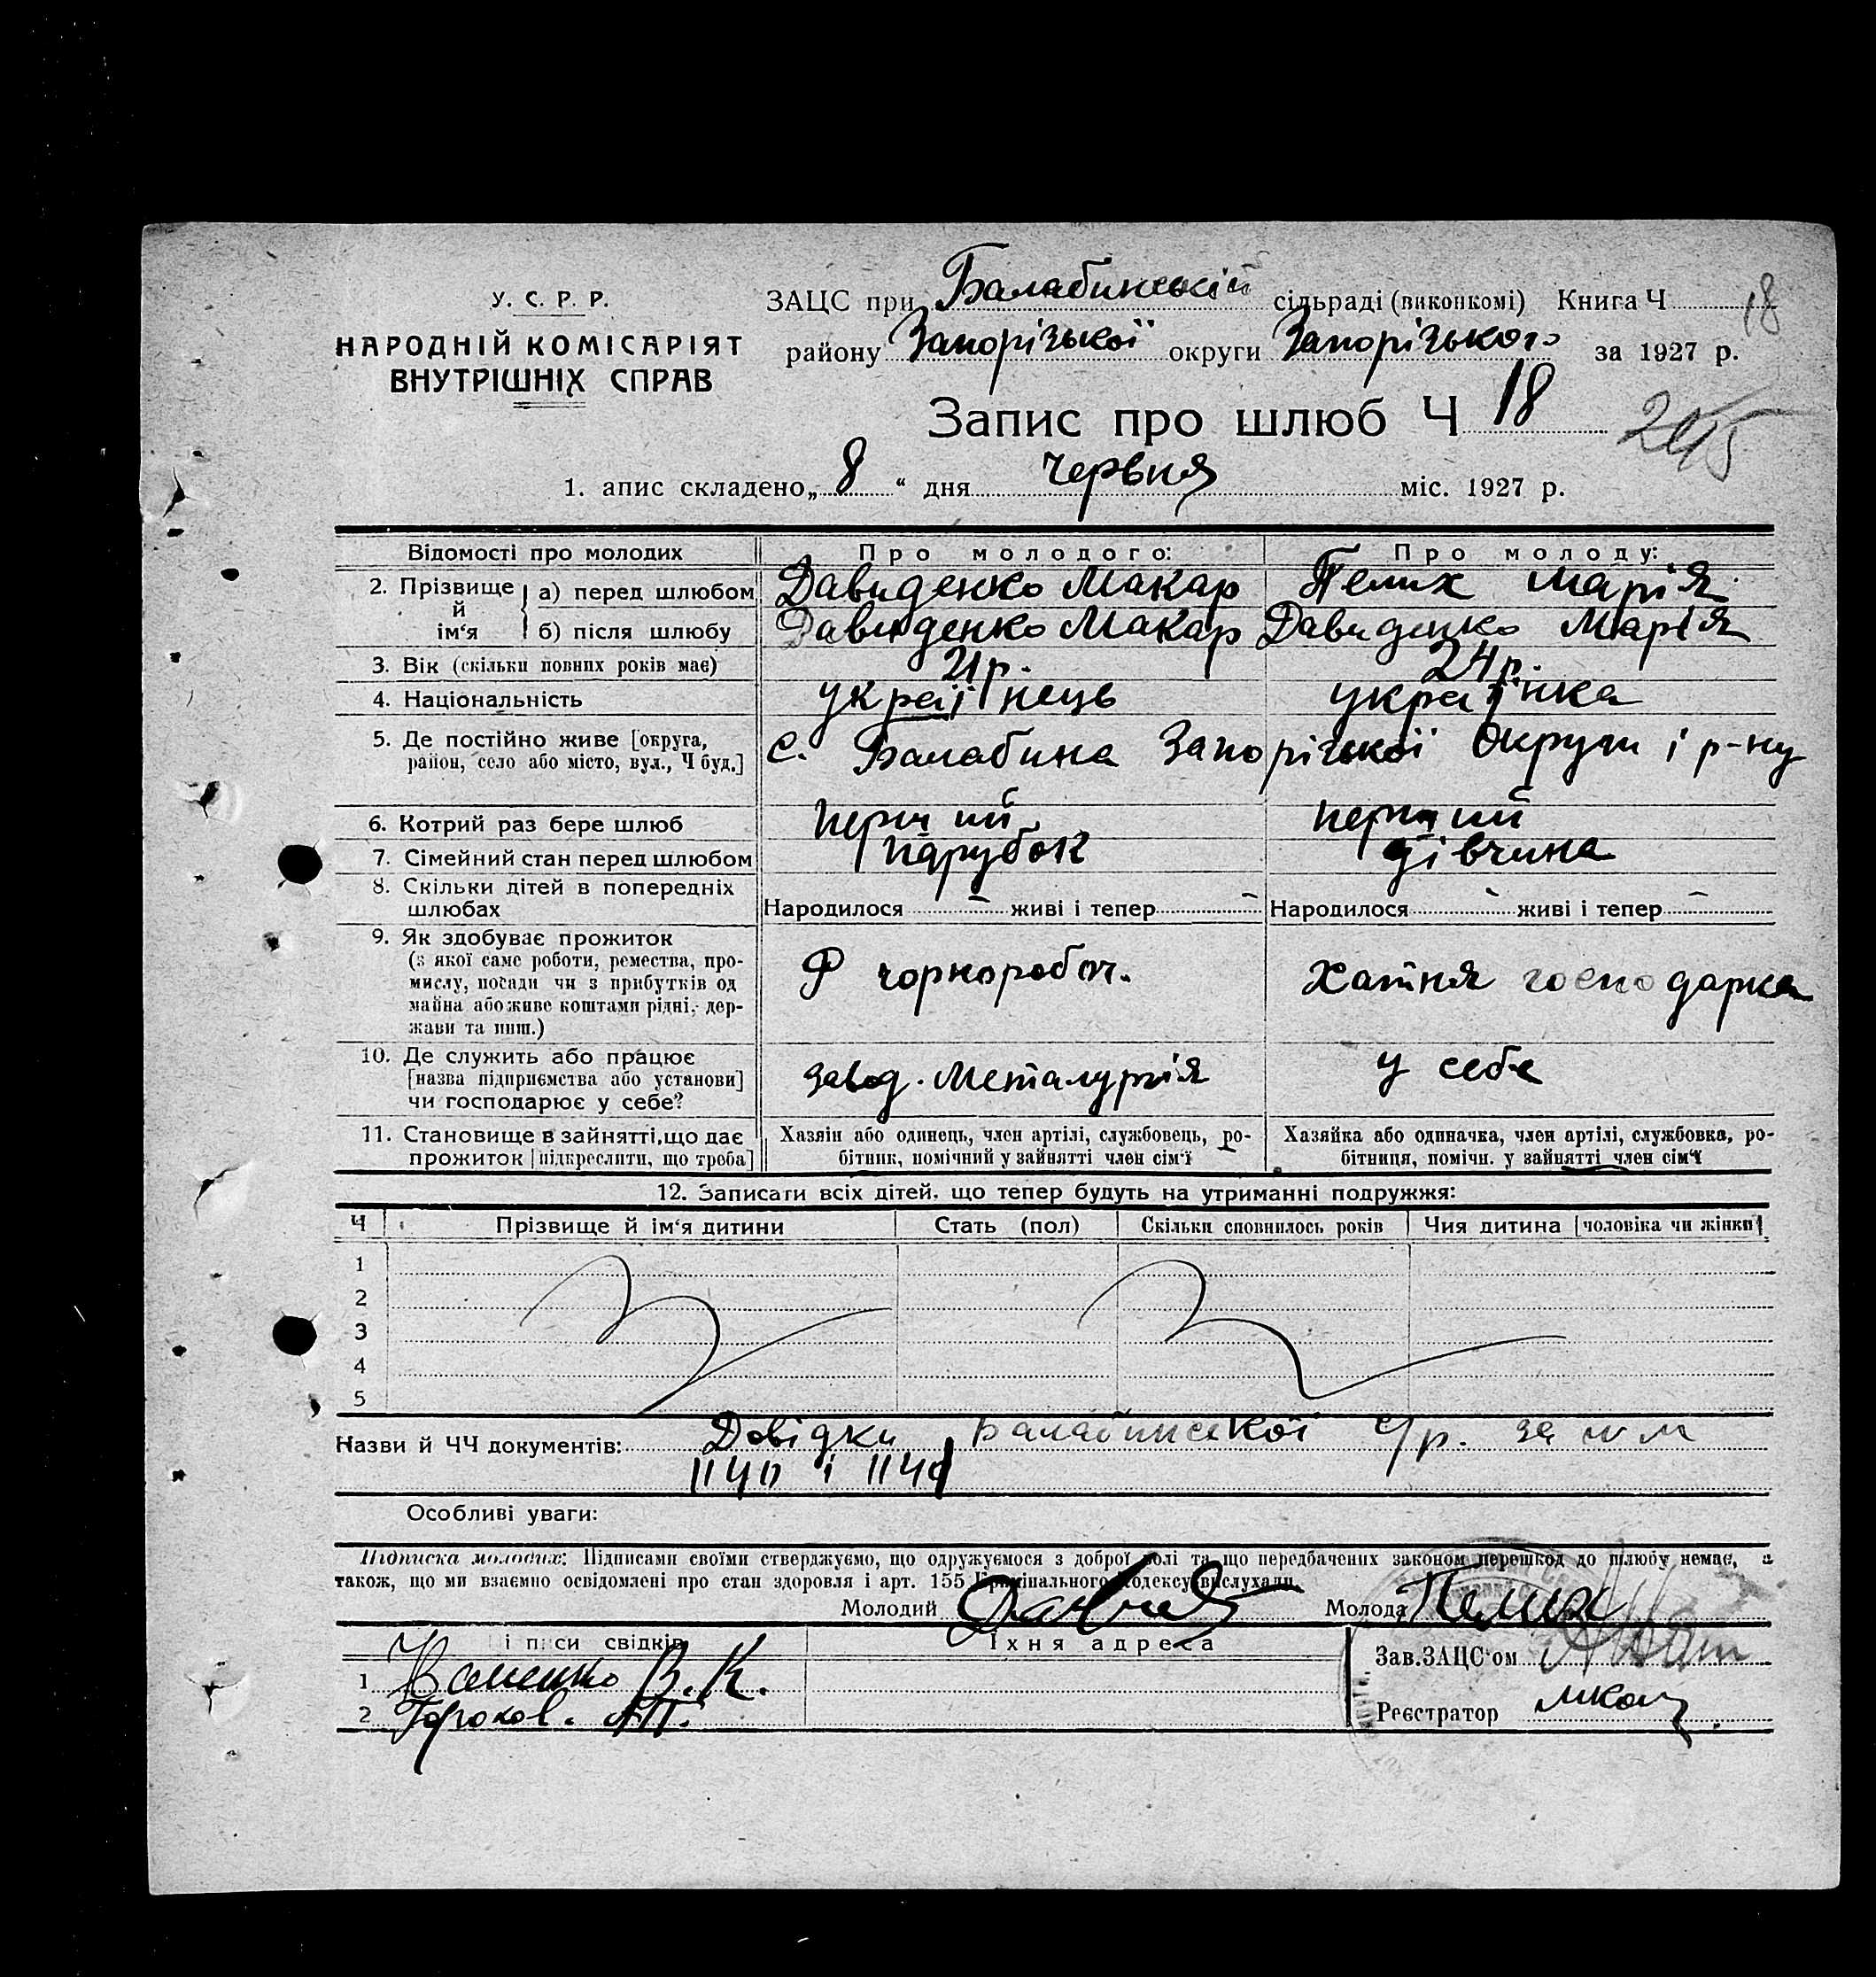 У. С. Р. Р.
НАРОДНІЙ КОМІСАРІЯТ
ВНУТРІШНІХ СПРАВ
ЗАЦС при Балабинській сільраді (виконкомі) Книга Ч
18
району Запорізької округи Запорізького за 1927 р.
Запис про шлюб Ч 18
1. апис складено „ 8 “ дня червня міс. 1927 р.
Відомості про молодих Про молодого: Про молоду:
2. Прізвище й ім‘я а) перед шлюбом Давиденко Макар Пелих Марія
б) після шлюбу Давиденко Макар Давиденко Марія
3. Вік (скільки повних років має) 21 р. 24 р.
4. Національність українець українка
5. Де постійно живе [округа, с. Балабина Запорізької Округи і р-ну
район, село або місто, вул., Ч буд.]
6. Котрий раз бере шлюб перший перший
7. Сімейний стан перед шлюбом парубок дівчина
8. Скільки дітей в попередніх
шлюбах Народилося – живі і тепер – Народилося – живі і тепер –
9. Як здобуває прожиток
(з якої саме роботи, ремества, про-
мислу, посади чи з прибутків од
майна або живе коштами рідні, дер-
жави та инш.)
чорноробоч. Хатня господарка
10. Де служить або працює
[назва підприємства або установи]
чи господарює у себе?
завод. Металургія у себе
11. Становище в зайнятті, що дає Хазяін або одинець, член артілі, службовець, ро- Хазяйка або одиначка, член артілі, службовка, ро-
прожиток [підкреслити, що треба] бітник, помічний у зайнятті член сім‘ї бітниця, помічн. у зайнятті член сім‘ї
12. Записати всіх дітей, що тепер будуть на утриманні подружжя:
Ч Прізвище й ім‘я дитини Стать (пол) Скільки сповнилось років Чия дитина [чоловіка чи жінки]
1
2
3
4
5
Назви й ЧЧ документів: Довідки Балабинської с/р. за
і
Особливі уваги:
Підписка молодих: Підписами своїми стверджуємо, що одружуємося з доброї волі та що передбачених законом перешкод до шлюбу немає, а
також, що ми взаємно освідомлені про стан здоровля і арт. 155 Кримінального Кодексу вислухали.
Молодий Молода Пелих
підписи свідків Їхня адреса
1 В. К.
2 Горохов. А.П.
Зав. ЗАЦС‘ом
Реєстратор